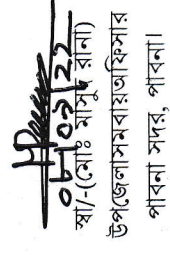 ০৮/০৯/২২
স্বা/-(মোঃ মাসুদ রানা)
উপজেলাসমবায়অফিসার
পাবনা সদর, পাবনা।